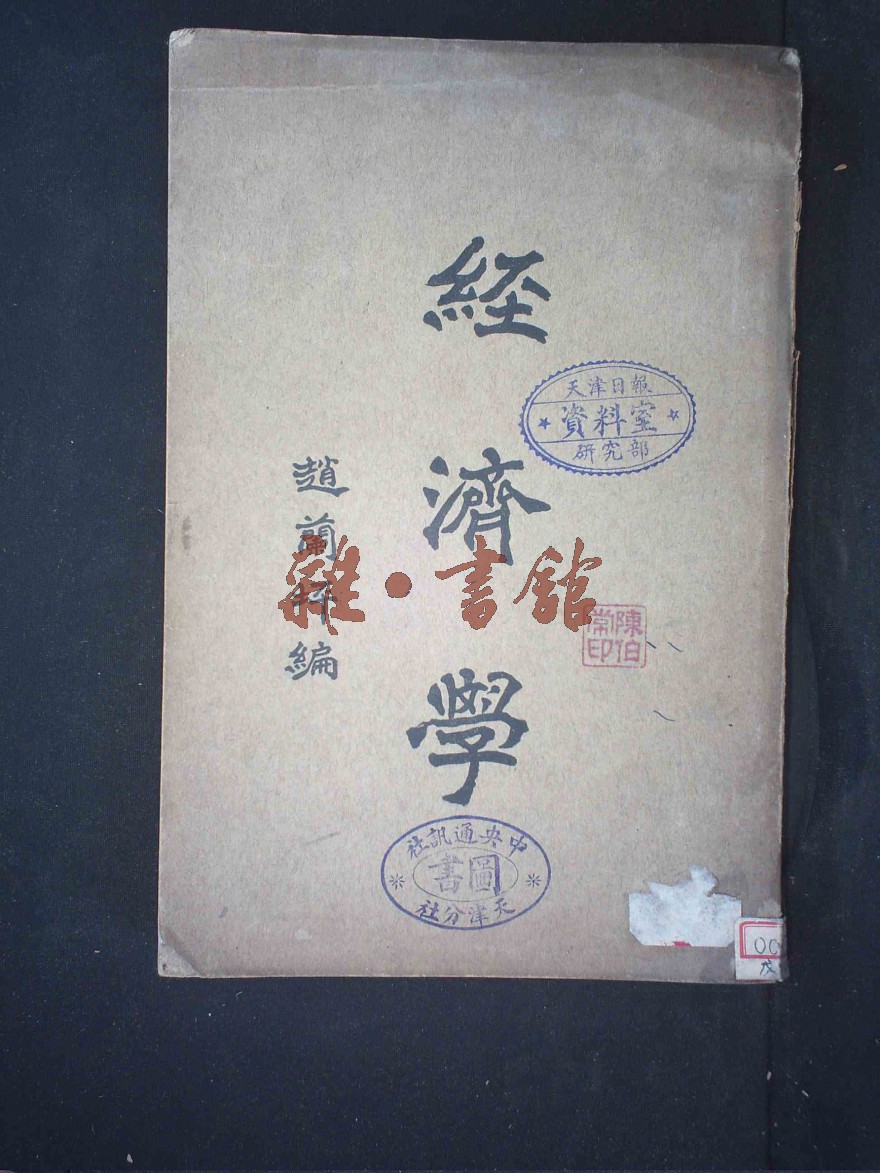 經濟學
趙蘭坪編
天津日報
資料室
研究部
雜·書館
陳伯常印
中央通訊社
圖書
天津分社
00